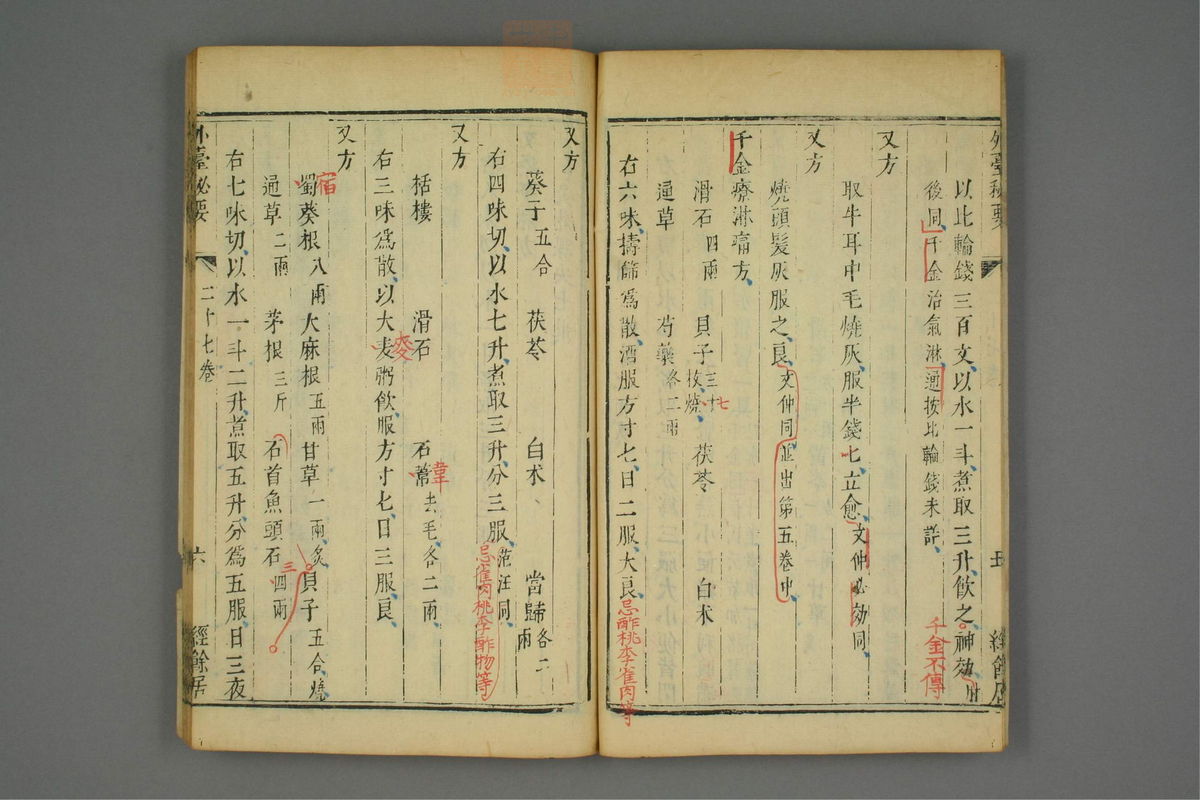 外臺秘要
五
經餘居
以比輪錢三百文以水一斗煮取三升飲之神効肘
後同千金治氣淋通按比輪錢未詳
千金不傳
又方
取牛耳中毛燒灰服半錢匕立愈文仲必効同
又方
燒頭髮灰服之良文仲同並出第五卷中
千金療淋痛方
滑石四兩 貝子三十枚燒 茯苓 白术
七
通草 芍藥各二兩
右六味擣篩為散酒服方寸匕日二服大良
忌酢桃李雀肉等
又方
葵子五合 茯苓 白术 當歸各二兩
右四味切以水七升煮取三升分三服范汪同
忌雀肉桃李酢物等
又方
栝樓 滑石 石葦去毛各二兩
韋
右三味為散以大麦粥飲服方寸匕日三服良
麥
又方
蜀葵根八兩 大麻根五兩 甘草一兩炙 貝子五合燒
宿
通草二兩 茅根三斤 石首魚頭石四兩
三
右七味切以水一斗二升煮取五升分為五服日三夜
外臺秘要
二十七卷
六
經餘居